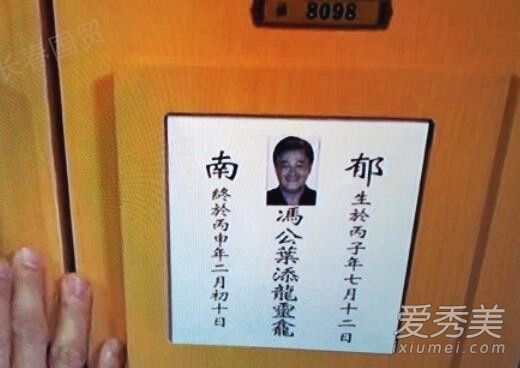 长春国贸
8098
郁
生於丙子年七月十二日
馮公葉添龍靈龕
南
終於丙申年二月初十日
爱秀美
ixiumei.com